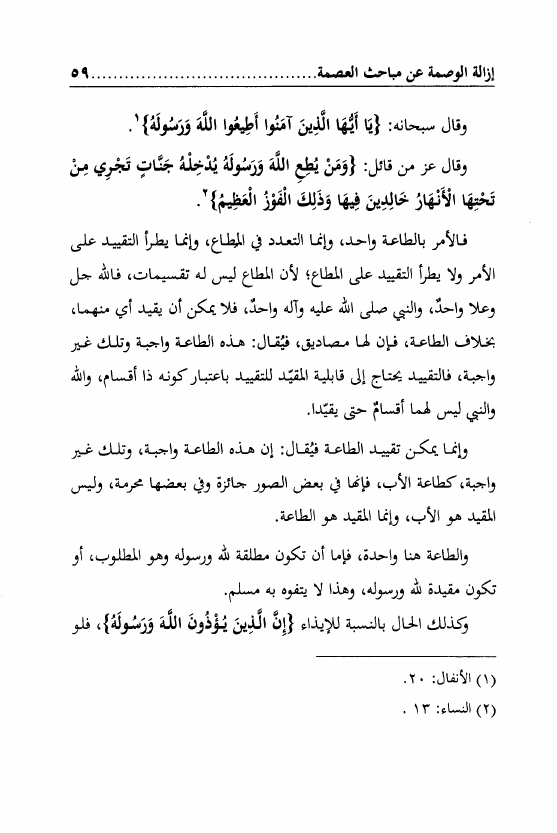 إزالة الوصمة عن مباحث العصمة.........................................٥٩
وقال سبحانه: {يَا أَيُّهَا الَّذِينَ آمَنُوا أَطِيعُوا اللَّهَ وَرَسُولَهُ}١.
وقال عز من قائل: {وَمَنْ يُطِعِ اللَّهَ وَرَسُولَهُ يُدْخِلْهُ جَنَّاتٍ تَجْرِي مِنْ
تَحْتِهَا الْأَنْهَارُ خَالِدِينَ فِيهَا وَذَلِكَ الْفَوْزُ الْعَظِيمُ}٢.
فالأمر بالطاعة واحد، وإنما التعدد في المطاع، وإنما يطرأ التقييد على
الأمر ولا يطرأ التقييد على المطاع؛ لأن المطاع ليس له تقسيمات، فالله جل
وعلا واحدٌ، والنبي صلى الله عليه وآله واحدٌ، فلا يمكن أن يقيد أي منهما،
بخلاف الطاعة، فإن لها مصاديق، فيُقال: هذه الطاعة واجبة وتلك غير
واجبة، فالتقييد يحتاج إلى قابلية المقيّد للتقييد باعتبار كونه ذا أقسام، والله
والنبي ليس لهما أقسامٌ حتى يقيّدا.
وإنما يمكن تقييد الطاعة فيُقال: إن هذه الطاعة واجبة، وتلك غير
واجبة، كطاعة الأب، فإنها في بعض الصور جائزة وفي بعضها محرمة، وليس
المقيد هو الأب، وإنما المقيد هو الطاعة.
والطاعة هنا واحدة، فإما أن تكون مطلقة لله ورسوله وهو المطلوب، أو
تكون مقيدة لله ورسوله، وهذا لا يتفوه به مسلم.
وكذلك الحال بالنسبة للإيذاء {إِنَّ الَّذِينَ يُؤْذُونَ اللَّهَ وَرَسُولَهُ}، فلو
(١) الأنفال: ٢٠.
(٢) النساء: ١٣ .